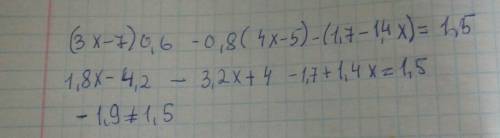 (3x-7)0,6 -0,8(4x-5)-(1,7-1,4x)=1,5
1,8x-4,2 - 3,2x+4 -1,7+1,4x=1,5
-1,9≠1,5